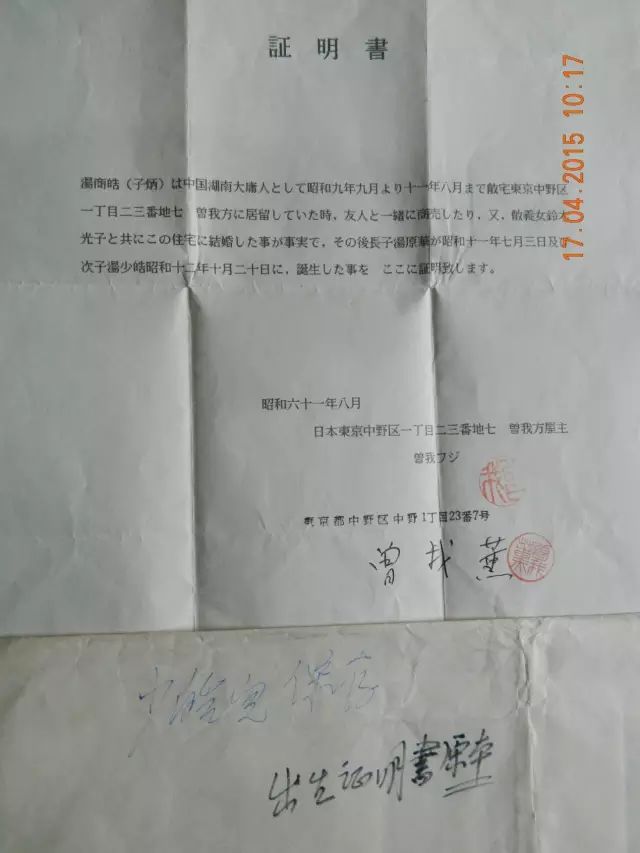 証明書
湯商皓（子炳）は中国湖南大庸人として昭和九年九月より十一年八月まで敝宅東京中野区
一丁目二三番地七　曽我方に居留していた時，友人と一緒に商売したり，又，敝義女鈴木
光子と共にこの住宅に結婚した事が事実で，その後長子湯原華が昭和十一年七月三日及び
次子湯少皓昭和十二年十月二十日に，誕生した事を　ここに証明致します。
昭和六十一年八月
日本東京中野区一丁目二三番地七　曽我方屋主
曽我フジ
東京都中野区中野1丁目23番7号
曽我
少皓児 保存
出生证明書原本
17.04.2015 10:17